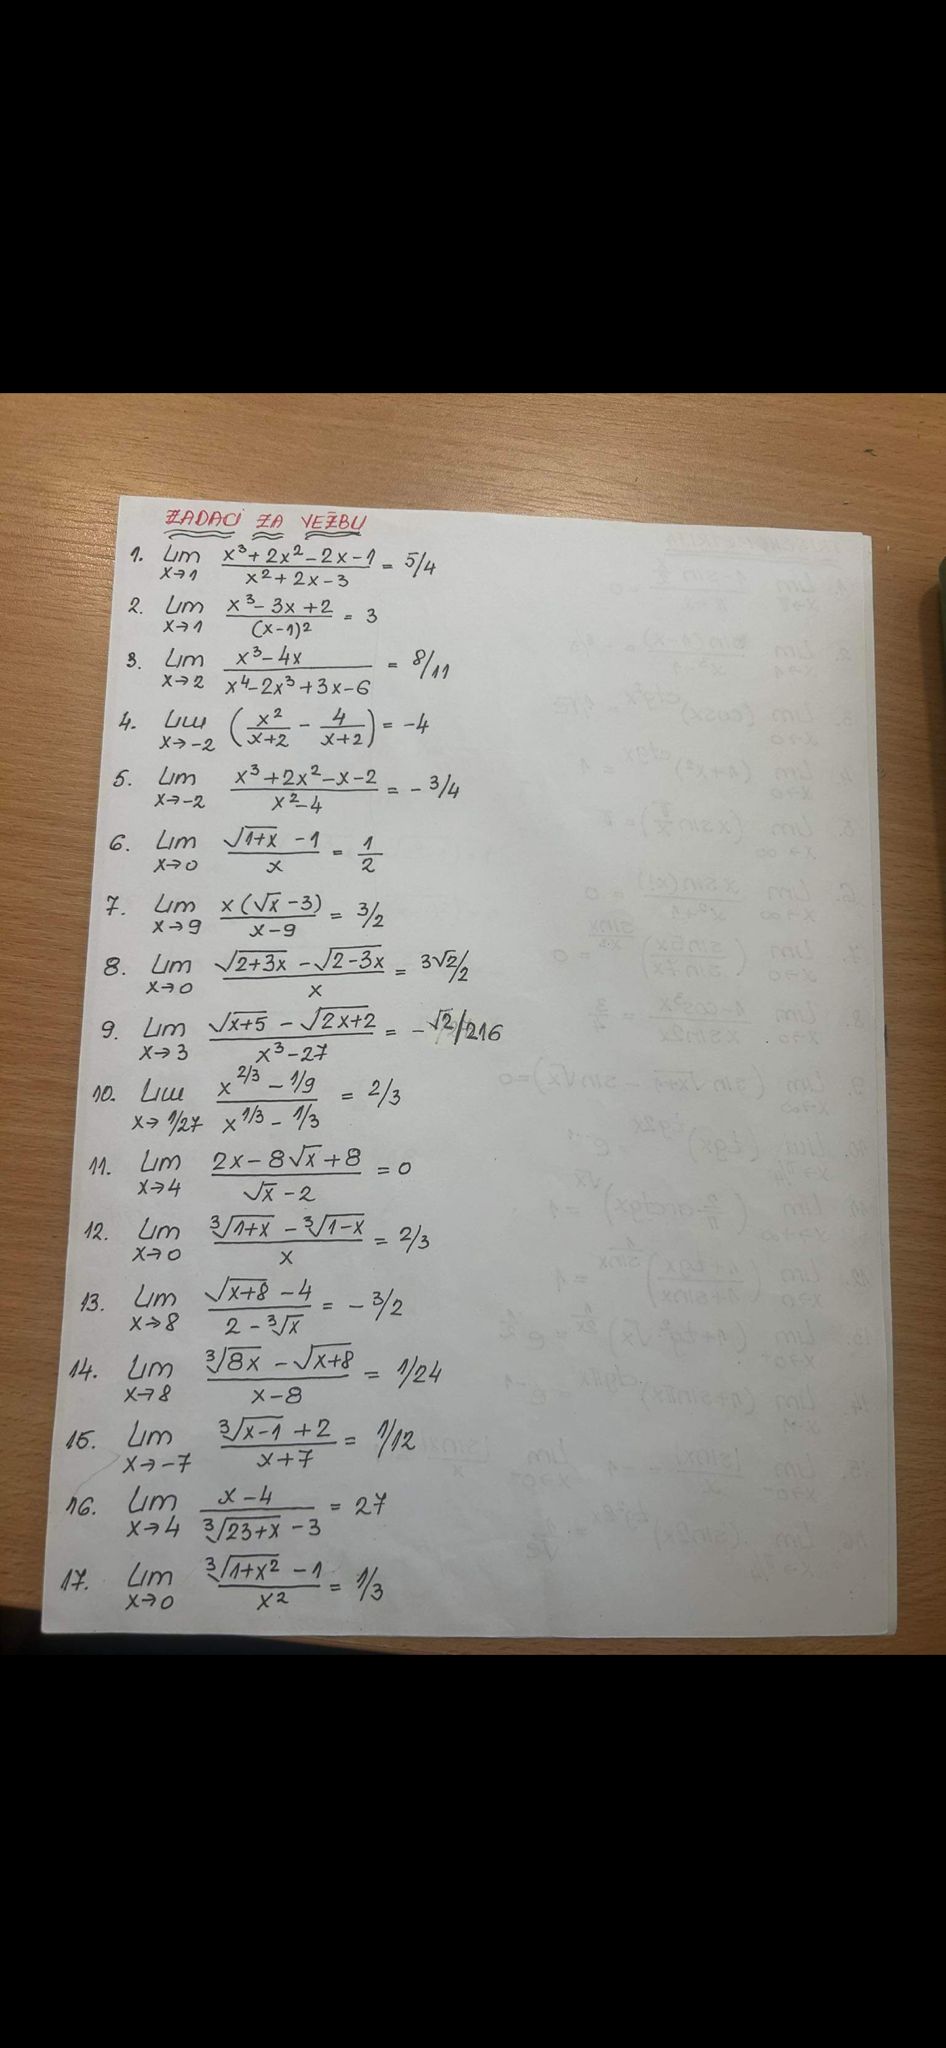 ZADACI ZA VEŽBU
1. lim x→1 (x³+2x²-2x-1)/(x²+2x-3) = 5/4
2. lim x→1 (x³-3x+2)/(x-1)² = 3
3. lim x→2 (x³-4x)/(x⁴-2x³+3x-6) = 8/11
4. lim x→-2 (x²/(x+2) - 4/(x+2)) = -4
5. lim x→-2 (x³+2x²-x-2)/(x²-4) = -3/4
6. lim x→0 (√(1+x) - 1)/x = 1/2
7. lim x→9 x(√x-3)/(x-9) = 3/2
8. lim x→0 (√(2+3x) - √(2-3x))/x = 3√2/2
9. lim x→3 (√(x+5) - √(2x+2))/(x³-27) = -√2/216
10. lim x→1/27 (x^(2/3) - 1/9)/(x^(1/3) - 1/3) = 2/3
11. lim x→4 (2x-8√x+8)/(√x-2) = 0
12. lim x→0 (³√(1+x) - ³√(1-x))/x = 2/3
13. lim x→8 (√(x+8) - 4)/(2-³√x) = -3/2
14. lim x→8 (³√(8x) - √(x+8))/(x-8) = 1/24
15. lim x→-7 (³√(x-1) + 2)/(x+7) = 1/12
16. lim x→4 (x-4)/(³√(23+x) - 3) = 27
17. lim x→0 (³√(1+x²) - 1)/x² = 1/3